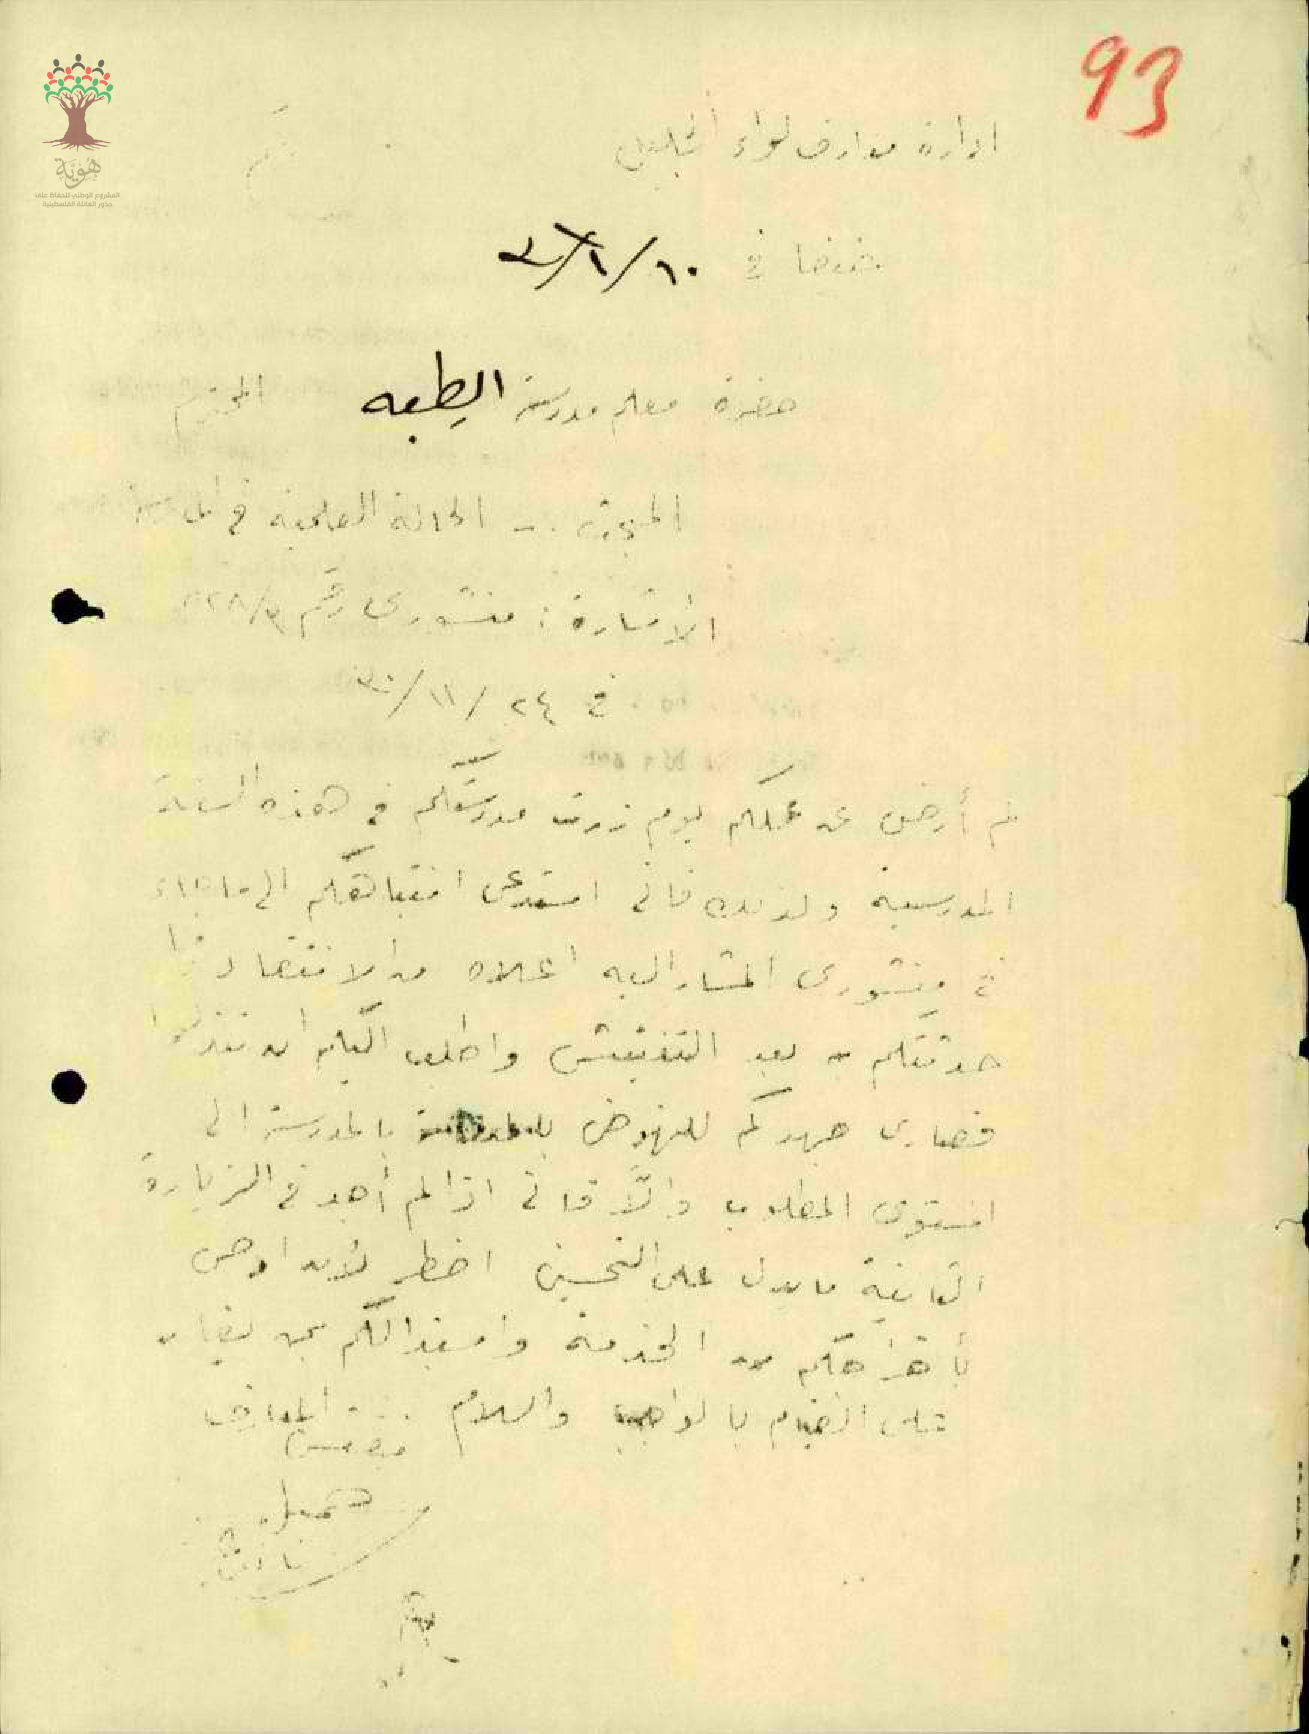 93
هُوِيَّة
المشروع الوطني للحفاظ على
جذور العائلة الفلسطينية
ادارة معارف لواء الجليل
حيفا في ١٠/١/
حضرة معلم مدرسة الطيبه المحترم
الموضوع :- الحالة العلمية في المدرسة
الاشارة : منشوري رقم ٢٢٨/٣
في ٢٤/١١/٣٠
لم أرض عن عملكم يوم زرت مدرستكم في هذه السنة
المدرسية ولذلك فاني استدعي انتباهكم الى ما جاء
في منشوري المشار اليه اعلاه من الانتقاد
بعد التفتيش واطلب اليكم ان تبذلوا
قصارى جهدكم للنهوض بالمدرسة الى
المستوى المطلوب والّا فاني اذا لم أجد في الزيارة
الثانية ما يدل على التحسين اضطر لأن اوصي
بأخراجكم من الخدمة واستبدالكم بمن
على القيام بالواجب والسلام
مفتش المعارف